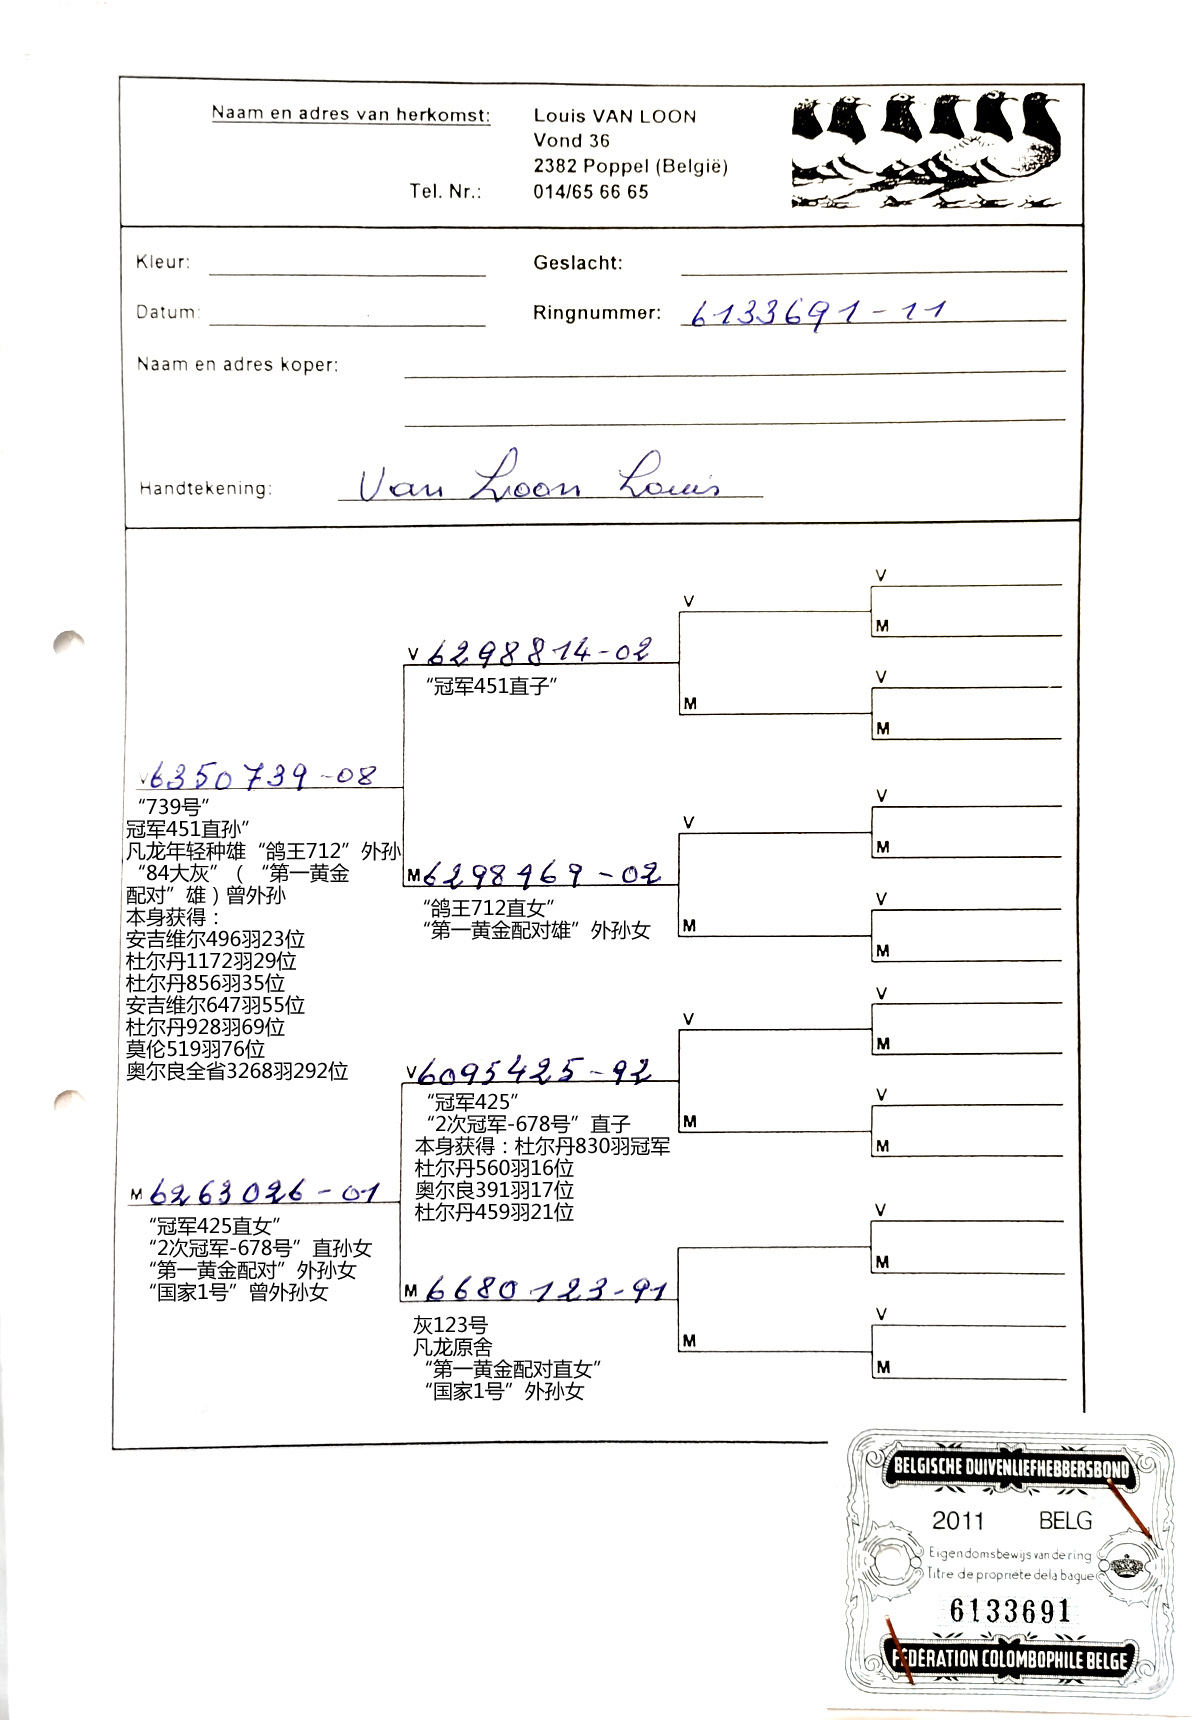 Naam en adres van herkomst: Louis VAN LOON
Vond 36
2382 Poppel (België)
Tel. Nr.: 014/65 66 65
Kleur: Geslacht:
Datum: Ringnummer: 6133691-11
Naam en adres koper:
Handtekening: Van Loon Louis
V
V
M
V 6298814-02
“冠军451直子”
V
M
M
V6350739-08
“739号”
冠军451直孙”
凡龙年轻种雄“鸽王712”外孙
“84大灰”（“第一黄金
配对”雄）曾外孙
本身获得：
安吉维尔496羽23位
杜尔丹1172羽29位
杜尔丹856羽35位
安吉维尔647羽55位
杜尔丹928羽69位
莫伦519羽76位
奥尔良全省3268羽292位
V
V
M
M6298469-02
“鸽王712直女”
“第一黄金配对雄”外孙女
V
M
M
V
V
M
V6095425-92
“冠军425”
“2次冠军-678号”直子
本身获得：杜尔丹830羽冠军
杜尔丹560羽16位
奥尔良391羽17位
杜尔丹459羽21位
V
M
M
M 6263026-01
“冠军425直女”
“2次冠军-678号”直孙女
“第一黄金配对”外孙女
“国家1号”曾外孙女
V
M
M 6680123-91
灰123号
凡龙原舍
“第一黄金配对直女”
“国家1号”外孙女
V
M
M
BELGISCHE DUIVENLIEFHEBBERSBOND
2011 BELG
Eigendomsbewijs van de ring
Titre de propriete de la bague
6133691
FEDERATION COLOMBOPHILE BELGE